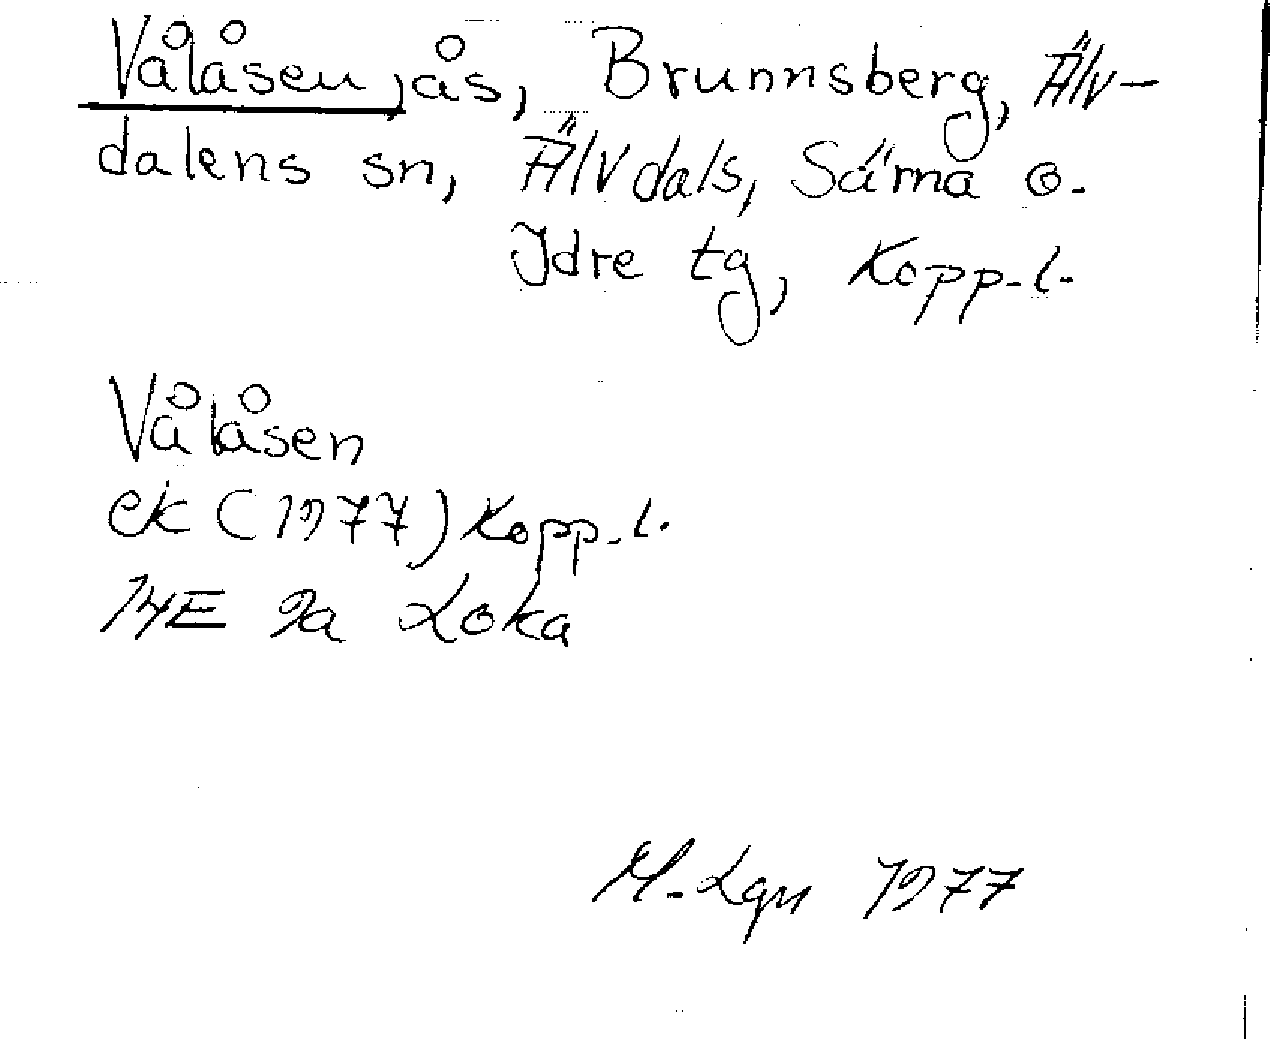 Vålåsen, ås, Brunnsberg, Älv-
dalens sn, Älvdals, Särna o.
Idre tg, Kopp.l.
Vålåsen
ek (1977) Kopp.l.
14E 9a Loka
M.Lgn 1977